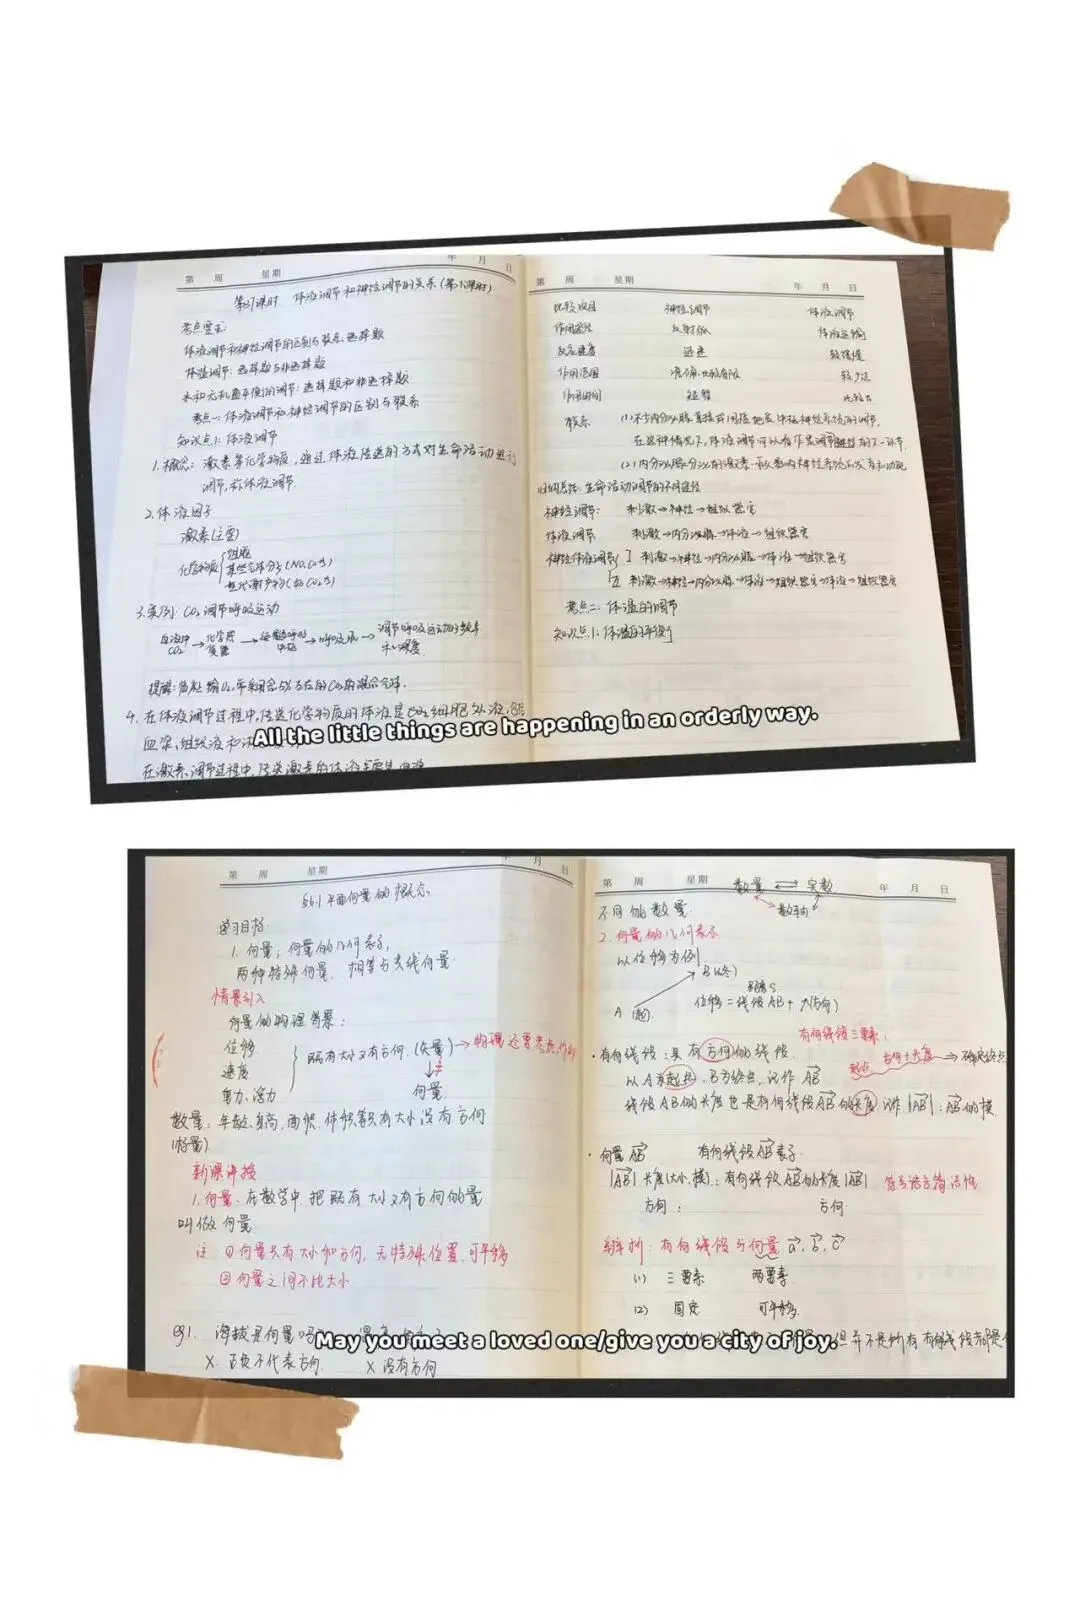 第 周 星期 年 月 日
第27课时 体液调节和神经调节的关系(第1课时)
考点要求:
体液调节和神经调节的区别与联系:选择题
体温调节:选择题与非选择题
水和无机盐平衡的调节:选择题和非选择题
考点一:体液调节和神经调节的区别与联系
知识点1:体液调节
1.概念:激素等化学物质,通过体液传送的方式对生命活动进行
调节,称体液调节.
2.体液因子
激素(主要)
化学物质 组胺
某些气体分子(NO、CO等)
一些代谢产物(如CO₂等)
3.实例:CO₂调节呼吸运动
CO₂ → 化学感受器 → → 呼吸肌 → 调节呼吸运动的频率
和深度.
4.在体液调节过程中,传送化学物质的体液是 细胞外液,
血浆,组织液和
在激素调节过程中,传送激素的体液主要是血浆
第 周 星期 年 月 日
比较项目 神经调节 体液调节
作用途径 反射弧 体液运输
反应速度 迅速 较缓慢
作用范围 准确、比较局限 较广泛
作用时间 短暂 比较长
联系 (1)不少内分泌腺直接或间接地受中枢神经系统的调节.
在这种情况下,体液调节可以看作是 调节的一环节.
(2)内分泌腺分泌的激素,可以影响神经系统的发育和功能
归纳总结:生命活动调节的不同途径
神经调节: 刺激→神经→组织器官
体液调节 刺激→内分泌腺→体液→组织器官
神经体液调节 Ⅰ 刺激→神经→内分泌腺→体液→组织器官
Ⅱ 刺激→神经→内分泌腺→体液→组织器官→体液→组织器官
考点二:体温的调节
知识点1:体温的平衡
All the little things are happening in an orderly way.
第 周 星期 月 日
§6.1 平面向量的概念
学习目标:
1.向量;向量的几何表示,
两种特殊向量. 相等与共线向量.
情景引入
向量的物理背景:
位移
速度 既有大小又有方向.(矢量) → 物理还要考虑
重力、浮力 向量.
数量:年龄、身高、面积、体积等只有大小没有方向
(标量)
新课讲授
1.向量:在数学中,把既有大小又有方向的量
叫做向量
注:①向量只有大小和方向,无特殊位置,可平移
②向量之间不比大小
eg1. 海拔是向量吗
×. 正负不代表方向. ×没有方向
第 周 星期 年 月 日
数量 ⟷ 实数
数轴
不同的数量
2.向量的几何表示
以位移为例
B(终)
A(起) 位移=线段AB+ 方向)
有向线段三要素:
·有向线段:具有方向的线段. 起点 方向+长度 → 确定终点
以A为起点,B为终点,记作 AB⃗
线段AB的长度也是有向线段AB⃗的长度 记作 |AB⃗|:AB⃗的模
·向量AB⃗ 有向线段AB⃗表示
|AB⃗|长度(大小,模):有向线段AB⃗的长度|AB⃗| 符号语言简洁性
方向: 方向
辨析:有向线段与向量 a⃗、b⃗、c⃗
(1) 三要素 两要素.
(2) 固定 可平移.
但并不是所有有向线段都是
May you meet a loved one/give you a city of joy.